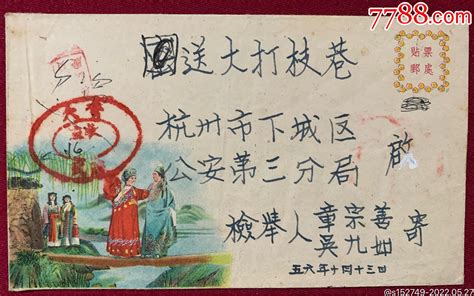 7788.com
送大打枝巷
贴票
邮处
杭州市下城区
公安第三分局
啟
檢举人章宗善
吴九如
寄
五六年十四十三日
@s152749-2022.05.27